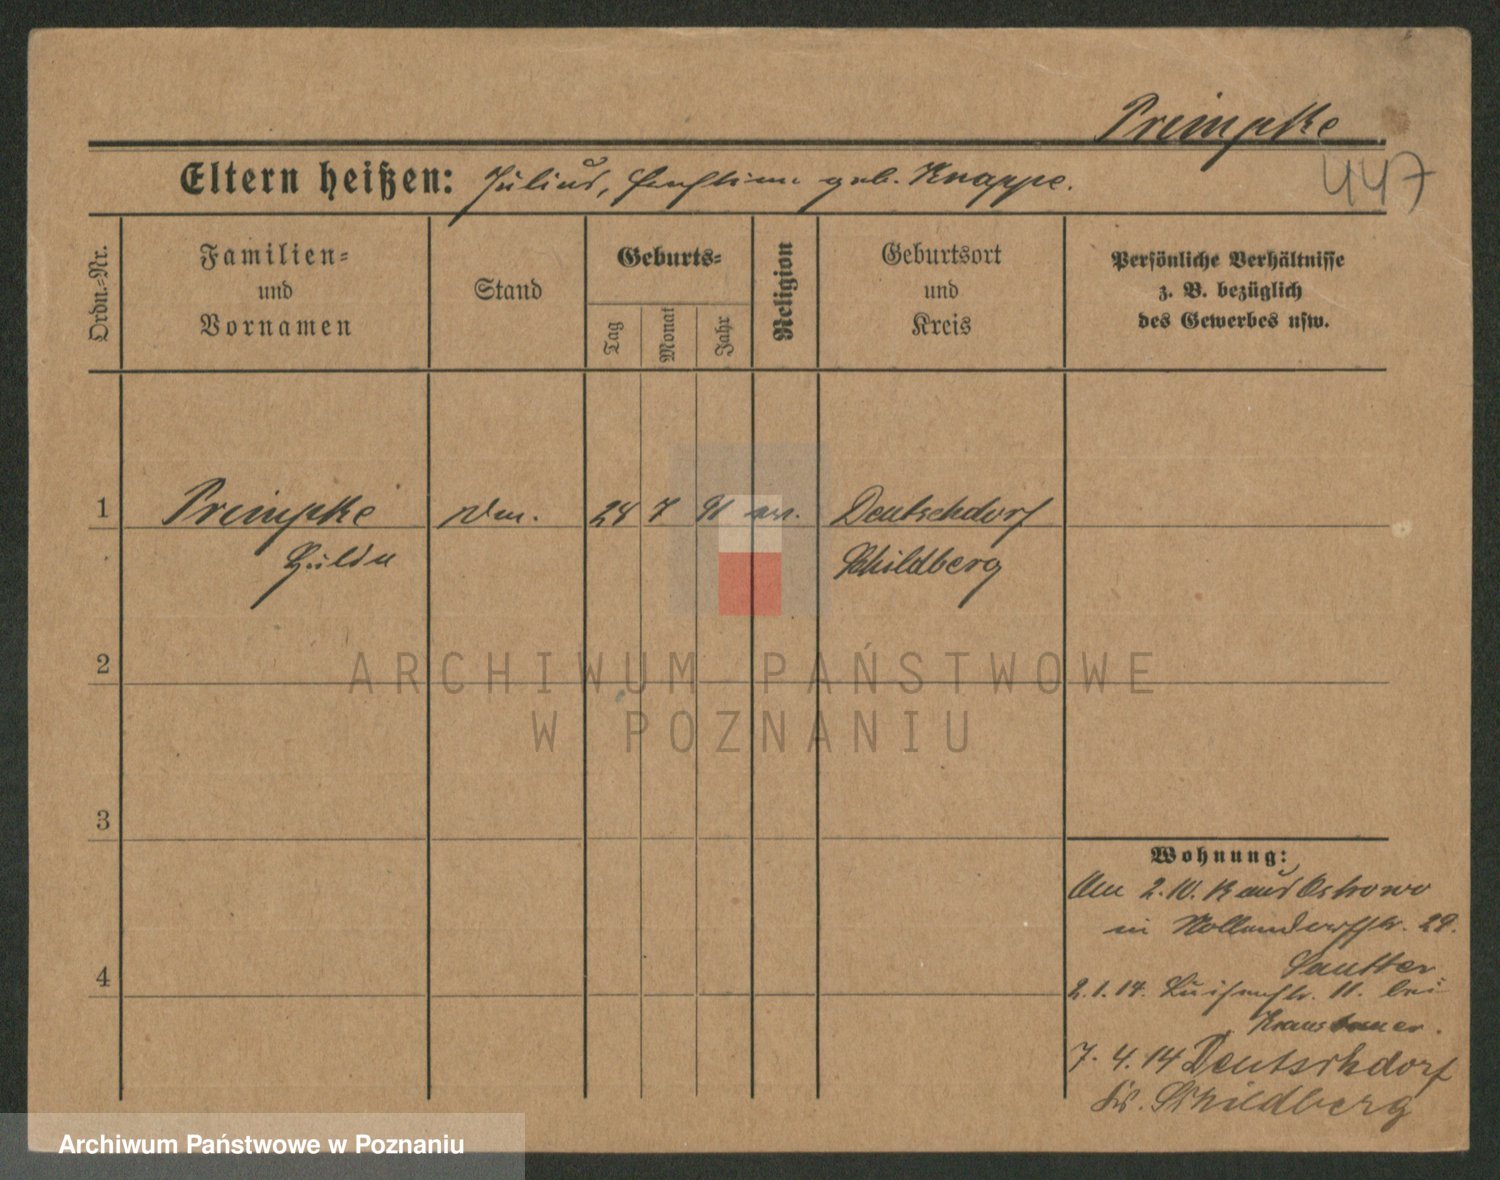 Preimpke
447
Eltern heißen: Julius, geb. Knappe.
Ordn.-Nr.
Familien-
und
Vornamen
Stand
Geburts-
Tag
Monat
Jahr
Religion
Geburtsort
und
Kreis
Persönliche Verhältnisse
z. B. bezüglich
des Gewerbes usw.
1 Preimpke 24 7 91 Deutschdorf
Hulda Schildberg
2
ARCHIWUM PAŃSTWOWE
W POZNANIU
3
Wohnung:
2.10. 13 aus Ostrowo
in Nollendorfstr. 29.
Sautter
4
2.1.14. Luisenstr. 11. bei
7. 4. 14 Deutschdorf
Kr. Schildberg
Archiwum Państwowe w Poznaniu